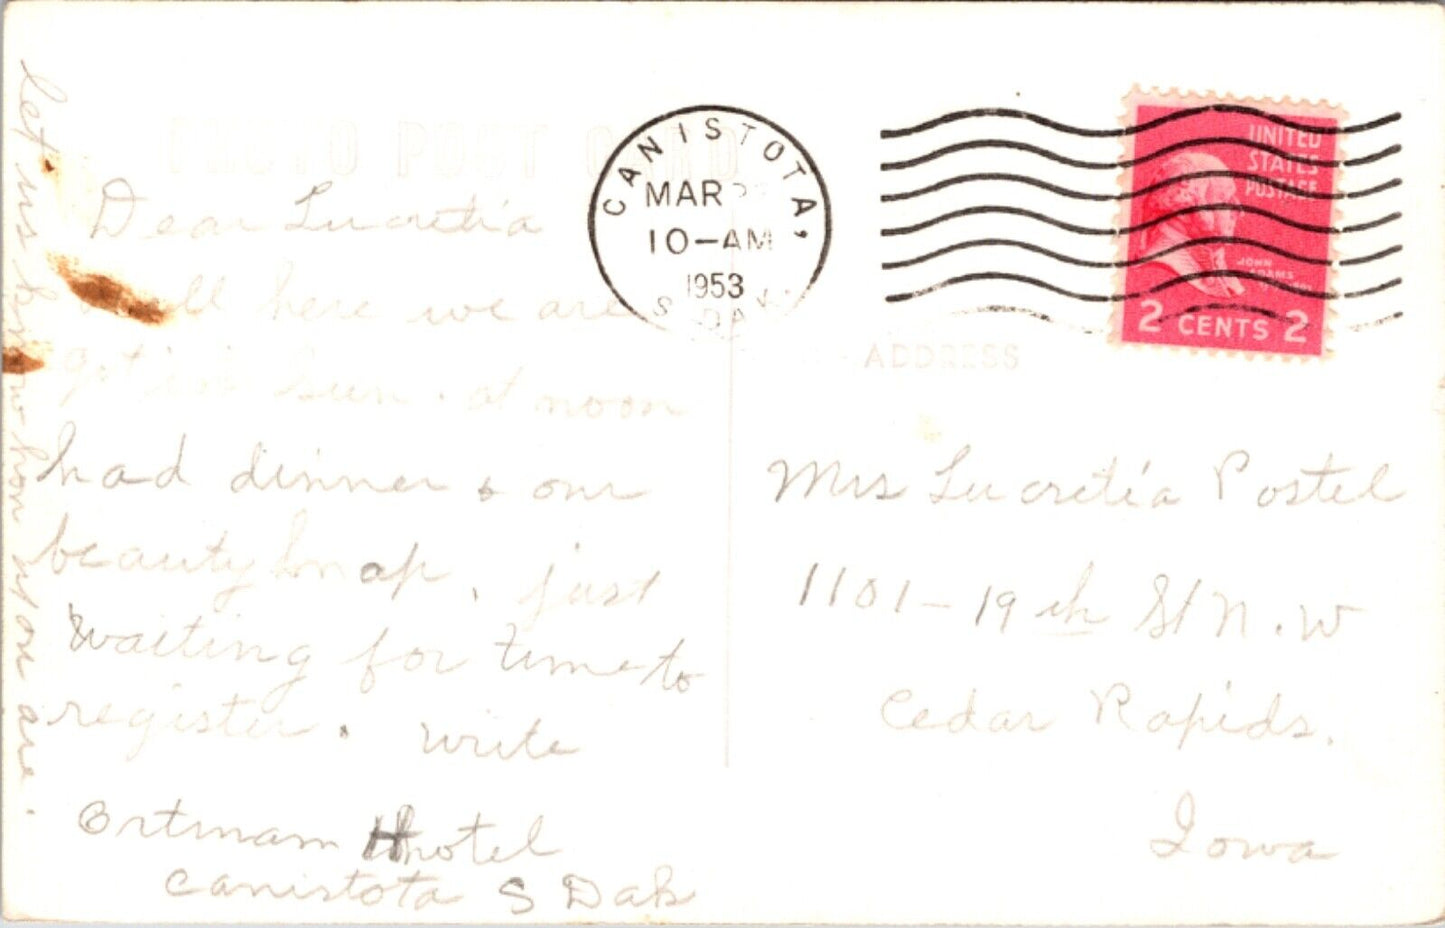 PHOTO POST CARD
CANISTOTA,
MAR
10-AM
1953
S. DAK.
UNITED
STATES
POSTAGE
JOHN
ADAMS
2 CENTS 2
ADDRESS
Dear Lucretia
Well here we are
got in Sun. at noon
had dinner & our
beauty nap. just
waiting for time to
register. write
Ortman Hotel
Canistota S Dak
let us know how you are.
Mrs Lucretia Postel
1101-19th St N.W
Cedar Rapids.
Iowa